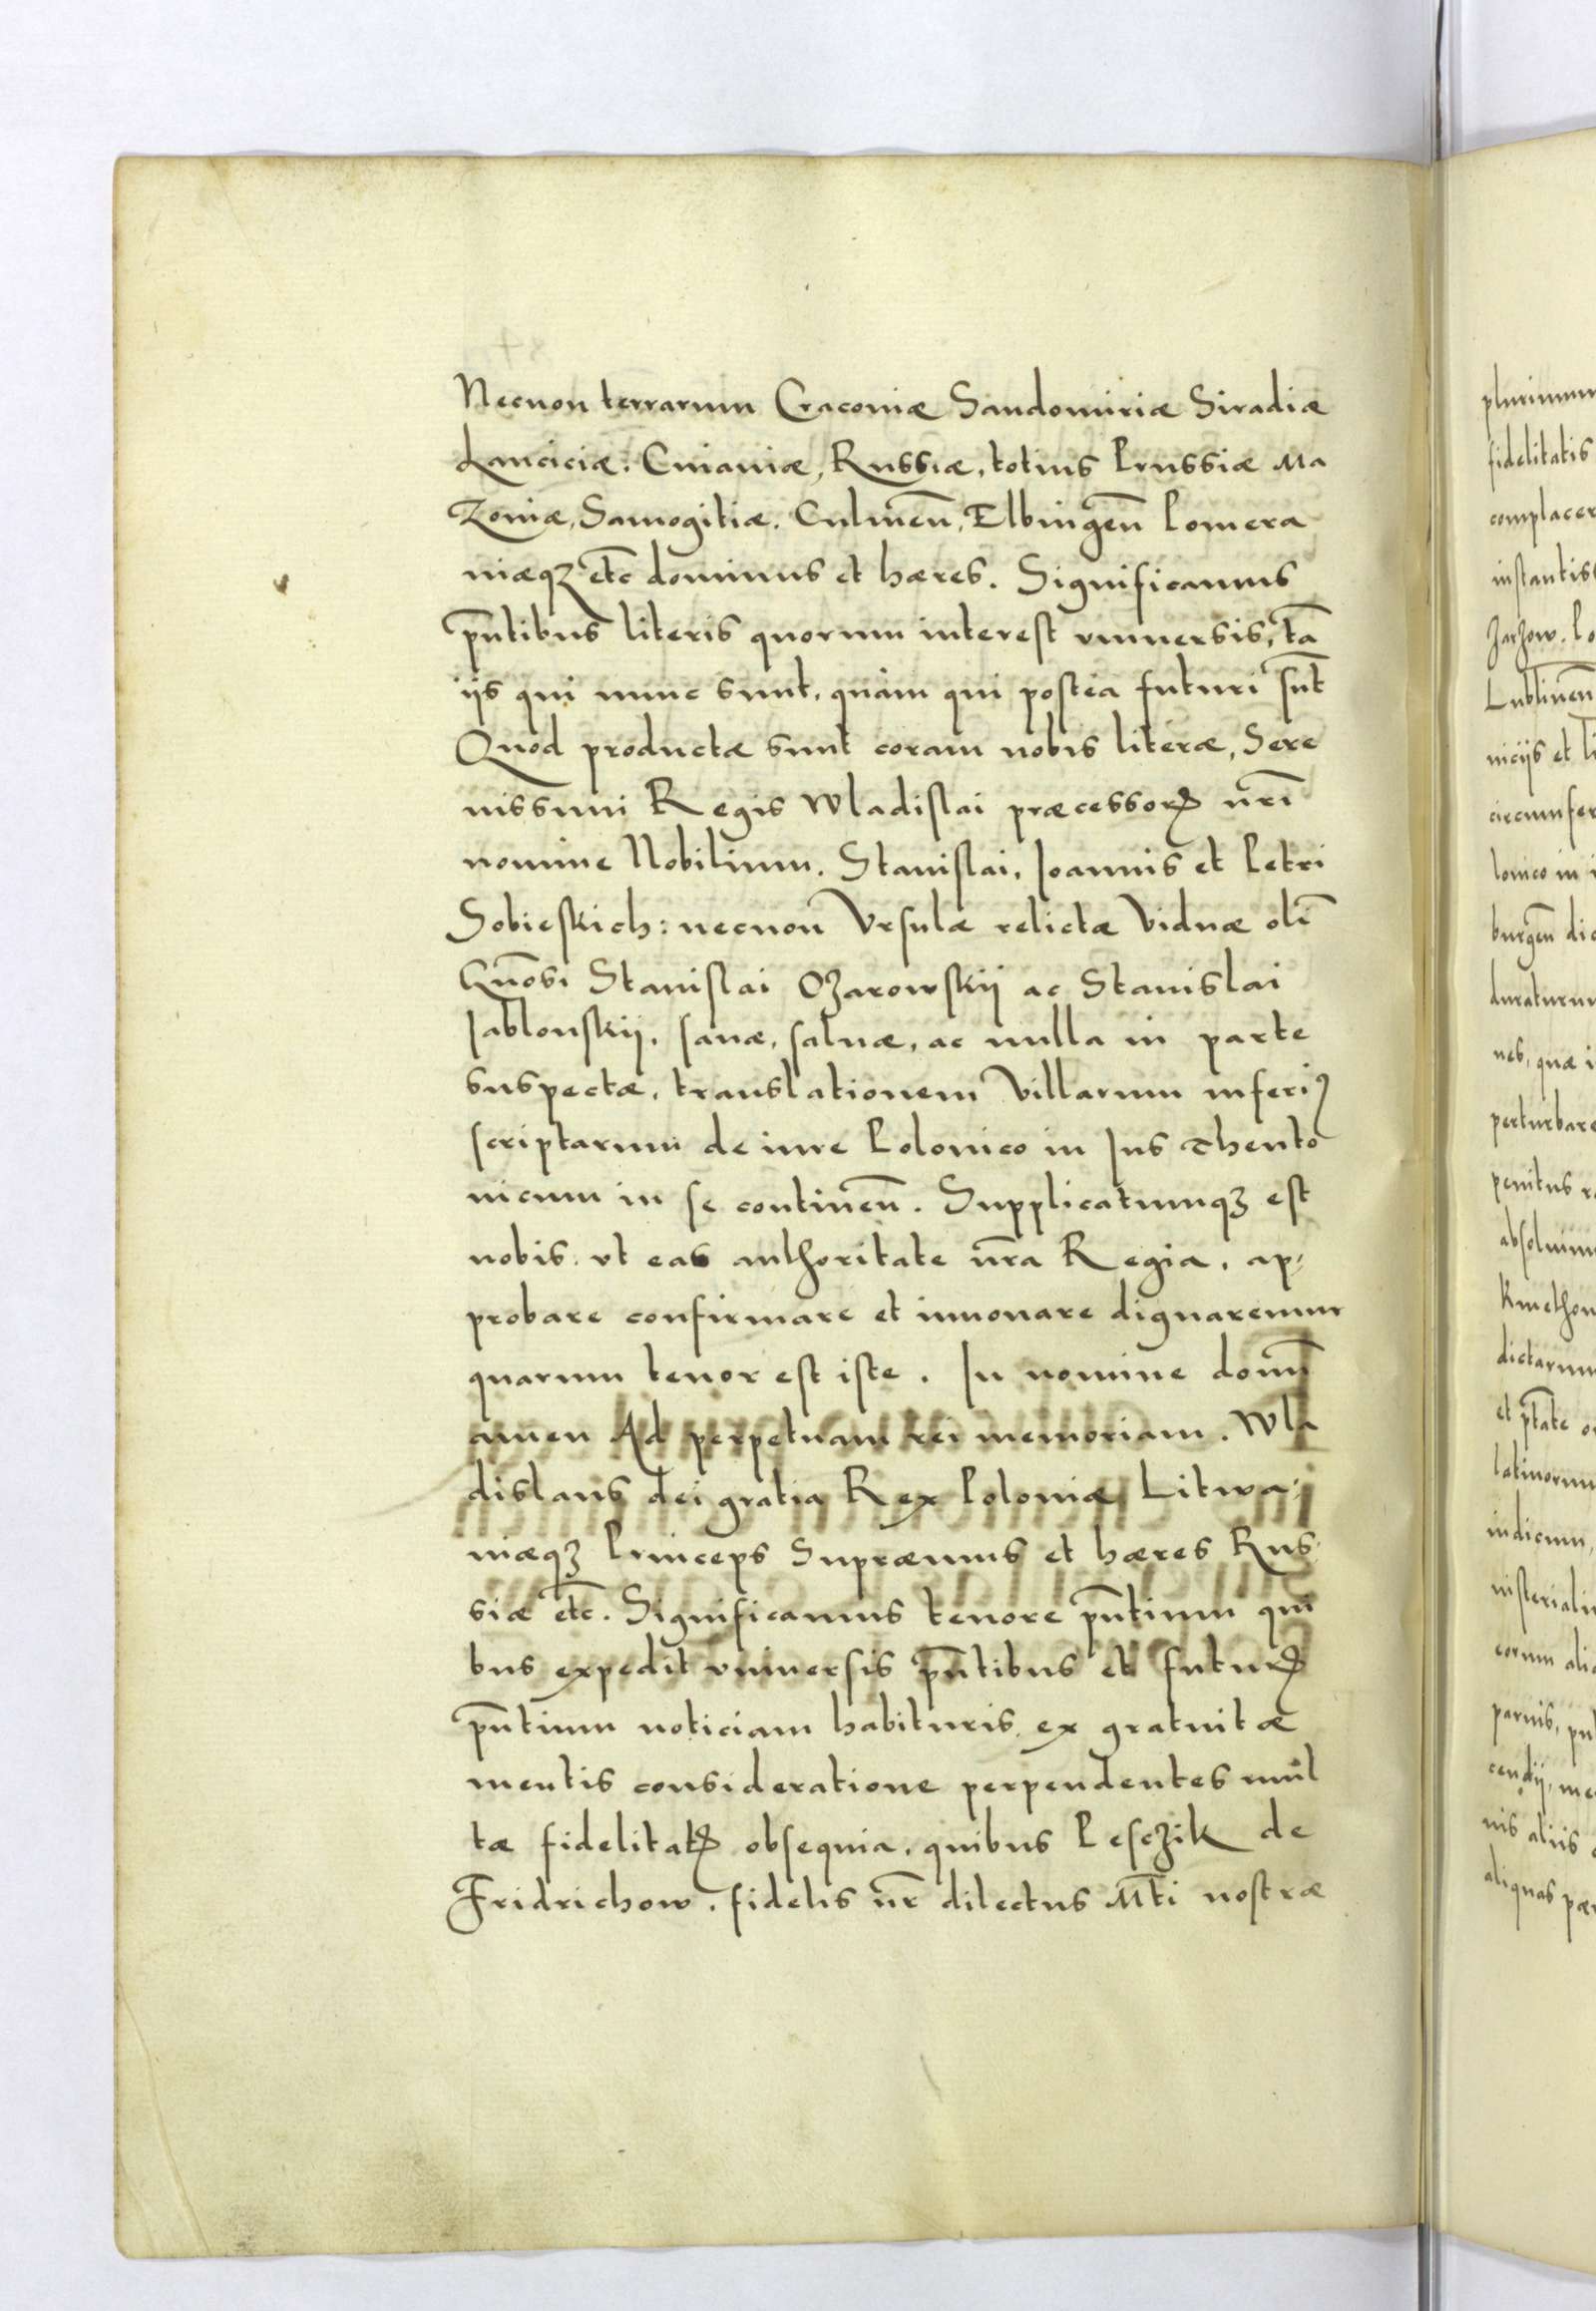 Necnon terrarum Cracouiæ Sandomiriæ Siradiæ
Lanciciæ. Cuiauiæ, Russiæ, totius Prussiæ Ma
Zouiæ, Samogitiæ. Culmeñ, Elbingeñ Pomera
niæqꝫ etc̃ dominus et hæres. Significamus
pñtibus literis quorum interest vniuersis, tã
iis qui nunc sunt, quàm qui postea futuri sñt
Quod productæ sunt coram nobis literæ, Sere
nissimi Regis Wladislai præcessorꝭ nr̃i
nomine Nobilium. Stanislai, Ioannis et Petri
Sobieskich: necnon Vrsulæ relictæ Viduæ olĩ
Gnõsi Stanislai Ozarowskii ac Stanislai
Iablonskii, sanæ, saluæ, ac nulla in parte
suspectæ, translationem Villarum inferiꝰ
scriptarum de iure Polonico in Ius Theuto
nicum in se contineñ. Supplicatumqꝫ est
nobis. vt eas authoritate nr̃a Regia, ap-
probare confirmare et innouare dignaremur
quarum tenor est iste. In nomine domĩ
amen Ad perpetuam rei memoriam. Wla
dislaus dei gratia Rex Poloniæ Litwa-
niæqꝫ Princeps Supræmus et hæres Rus-
siæ etc̃. Significamus tenore pñtium qui
bus expedit vniuersis pñtibus et futurꝭ
pñtium noticiam habituris. ex gratuitæ
mentis consideratione perpendentes mul
tæ fidelitatꝭ obsequia. quibus Pesczik de
Fridrichow. fidelis nr̃ dilectus Mt̃i nostræ
plurimum
fidelitatis
instantiss
Lublineñ
niciis et li
burgeñ
perturbare
penitus
dictarum
et ptãte
latinorum
eorum
paruis,
aliquas